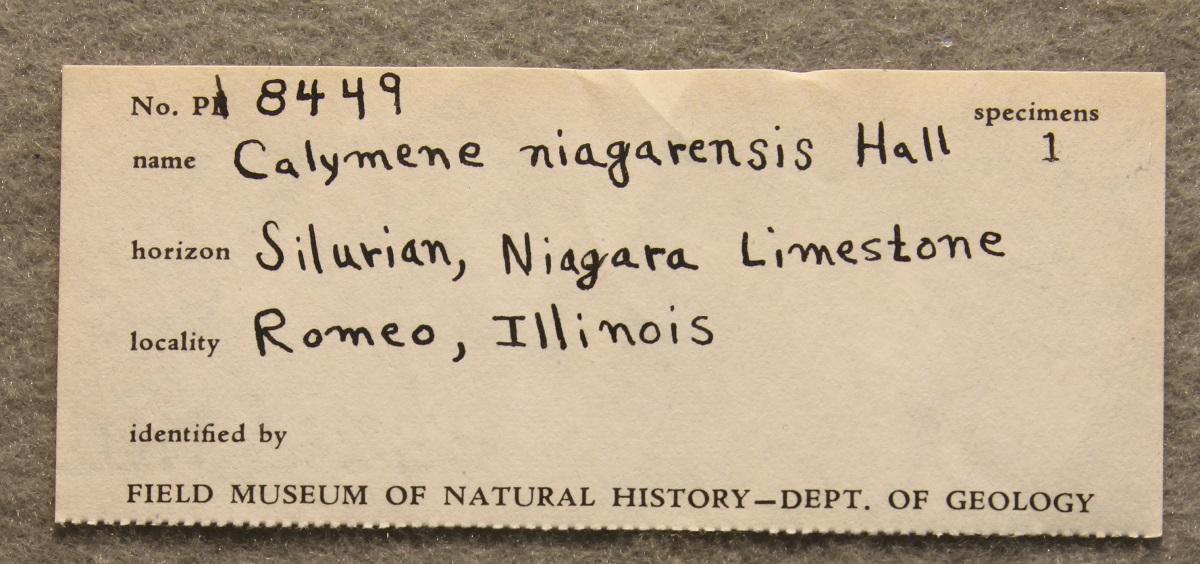 No. P 8449
specimens
name Calymene niagarensis Hall 1
horizon Silurian, Niagara Limestone
locality Romeo, Illinois
identified by
FIELD MUSEUM OF NATURAL HISTORY—DEPT. OF GEOLOGY